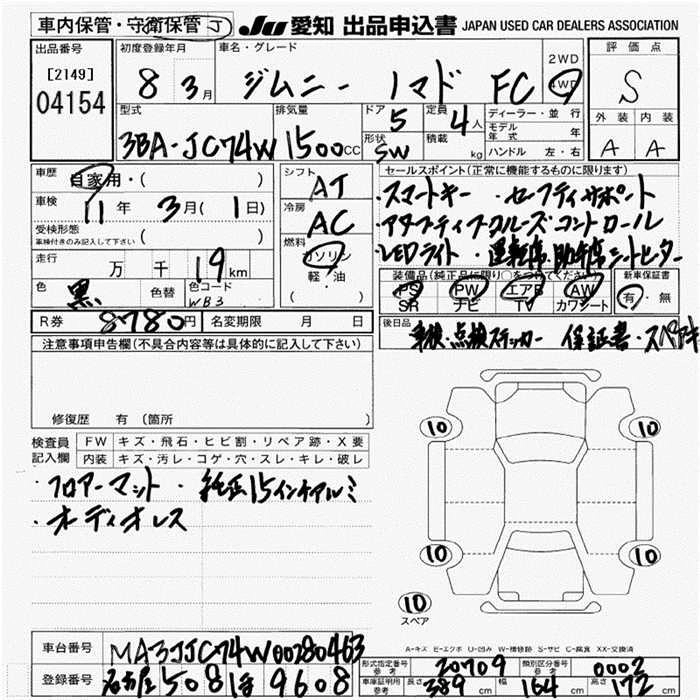 車内保管・守衛保管 J JU 愛知 出品申込書 JAPAN USED CAR DEALERS ASSOCIATION
出品番号 初度登録年月 車名・グレード 評価点
[2149] 04154 8 3月 ジムニー ノマド FC 2WD 4WD S
型式 排気量 ドア 5 定員 4人 ディーラー・並行 外装 内装
3BA-JC74W 1500cc 形状 SW 積載 kg モデル年式 年 A A
ハンドル 左・右
車歴 自家用・( ) シフト AT セールスポイント(正常に機能するものに限ります)
車検 11年 3月(1日) 冷房 AC ・スマートキー ・セーフティサポート
受検形態 車検付きのみ記入して下さい ( ) ・アダプティブクルーズコントロール
燃料 ガソリン 軽・油 ( ) ・LEDライト ・運転席・助手席シートヒーター
走行 万 千 19km 装備品(純正品に限り○をつけてください) 新車保証書
色 黒 色替 色コード WB3 PS PW エアB AW 有・無
SR ナビ TV カワシート
R券 8780円 名変期限 月 日 後日品 車検・点検ステッカー 保証書・スペアキ
注意事項申告欄(不具合内容等は具体的に記入して下さい)
修復歴 有 (箇所 )
検査員記入欄 FW キズ・飛石・ヒビ割・リペア跡・X要
内装 キズ・汚レ・コゲ・穴・スレ・キレ・破レ
・フロアーマット ・純正15インチアルミ
・オーディオレス
10 10
10 10
10
スペア
A-キズ E-エクボ U-凹み W-補修跡 S-サビ C-腐食 XX-交換済
車台番号 MA3JJC74W00280463 形式指定番号 参考 20709 類別区分番号 参考 0002
登録番号 名古屋 508 ほ 9608 車庫証明用 参考 長さ 389cm 幅 164cm 高さ 172cm